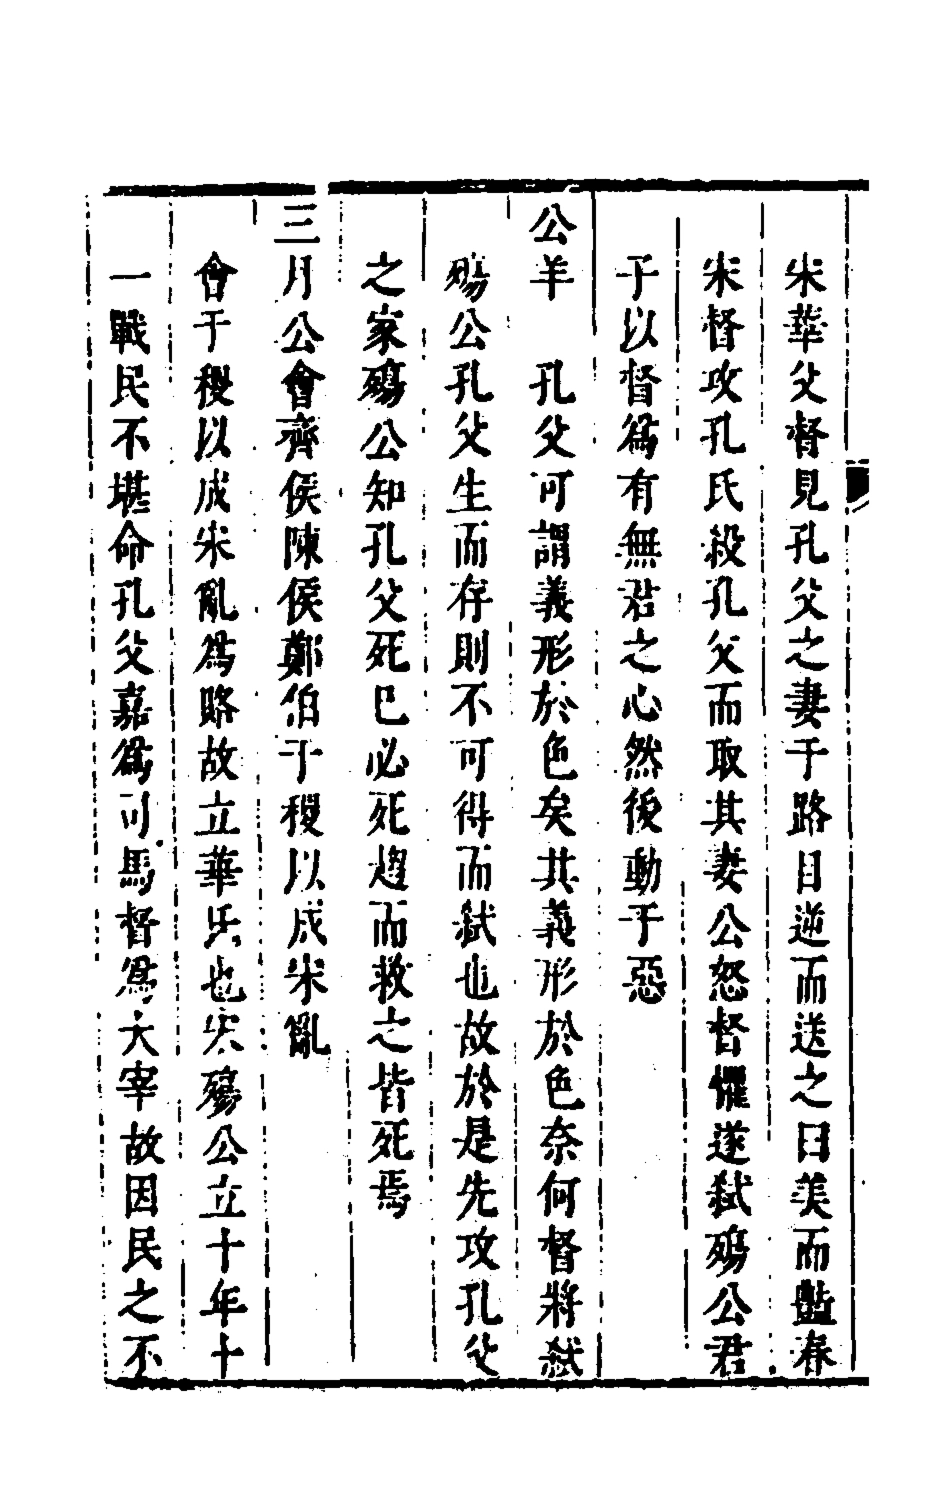 宋華父督見孔父之妻于路目逆而送之曰美而豔春
宋督攻孔氏殺孔父而取其妻公怒督懼遂弑殤公君
子以督爲有無君之心然後動于惡
公羊　孔父可謂義形於色矣其義形於色奈何督將弑
殤公孔父生而存則不可得而弑也故於是先攻孔父
之家殤公知孔父死已必死趨而救之皆死焉
三月公會齊侯陳侯鄭伯于稷以成宋亂
會于稷以成宋亂爲賂故立華氏也宋殤公立十年十
一戰民不堪命孔父嘉爲司馬督爲大宰故因民之不